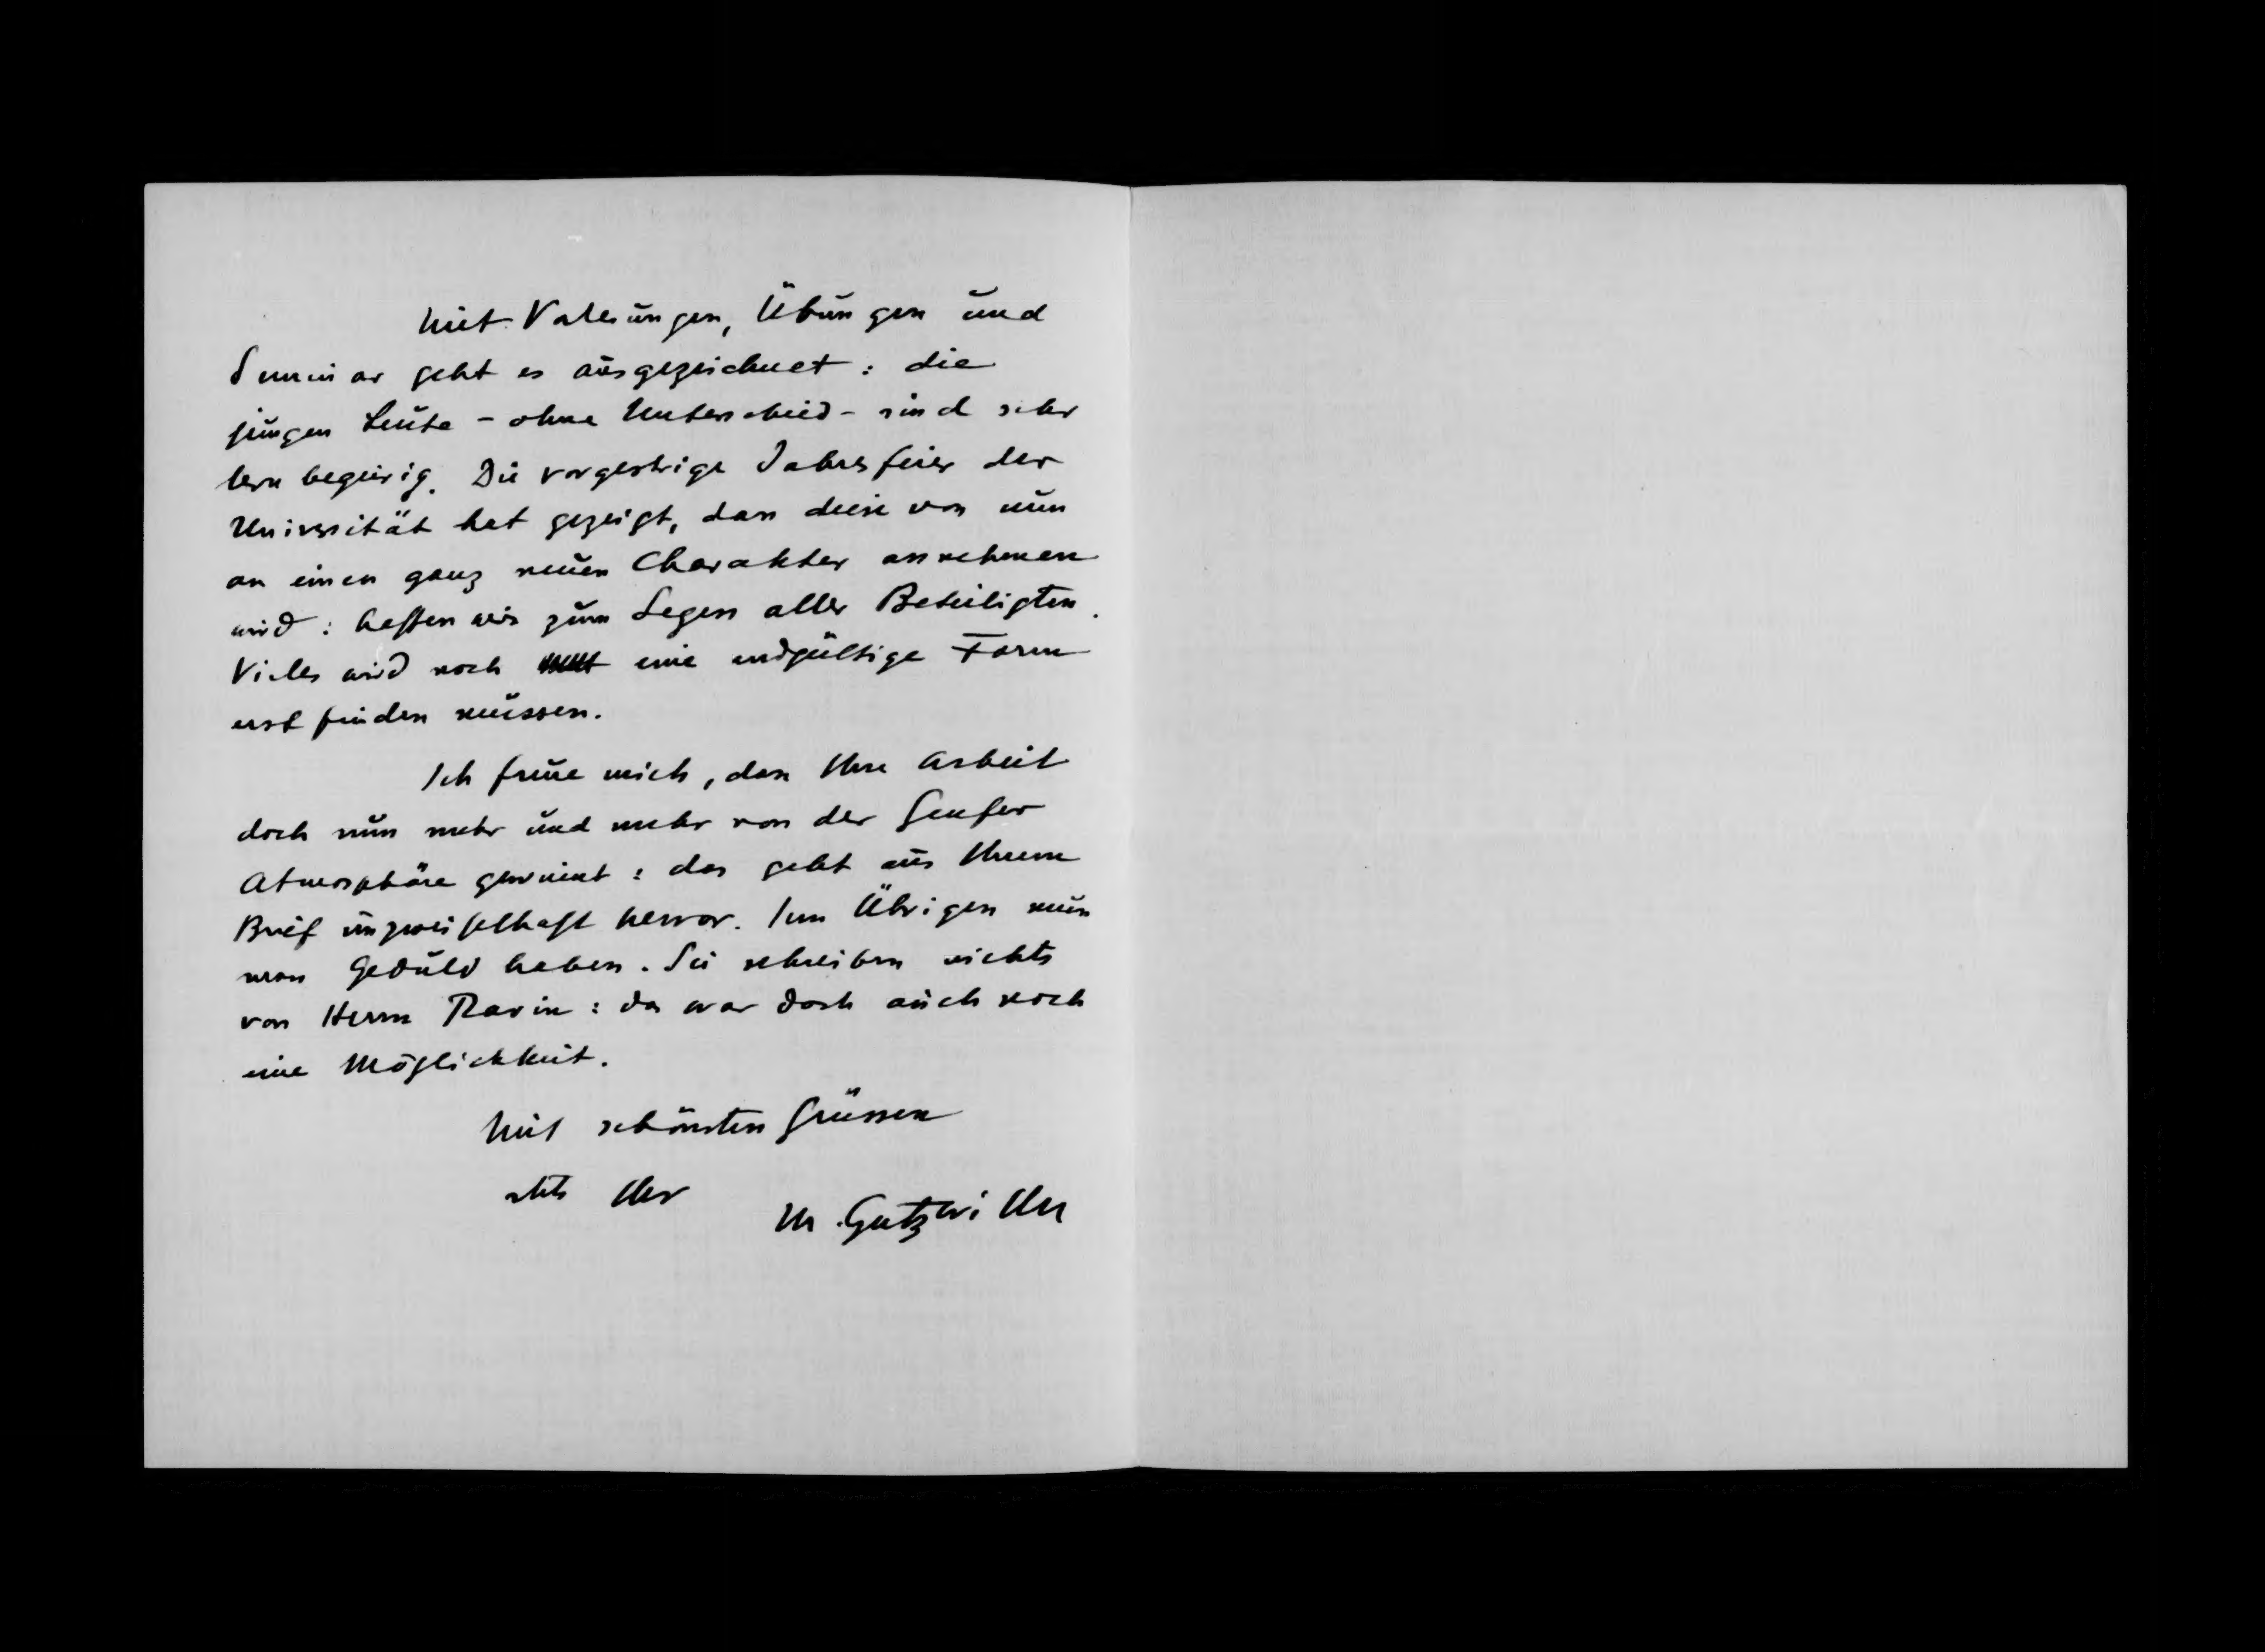 Mit Vorlesungen, Übungen und
Seminar geht es ausgezeichnet: die
jungen Leute - ohne Unterschied - sind sehr
lernbegierig. Die vorgestrige Jahresfeier der
Universität hat gezeigt, dass diese von nun
an einen ganz neuen Charakter annehmen
wird: hoffen wir zum Segen aller Beteiligten.
Vieles wird noch eine endgültige Form
erst finden müssen.
Ich freue mich, dass Ihre Arbeit
doch nun mehr und mehr von der Genfer
Atmosphäre gewinnt: das geht aus Ihrem
Brief unzweifelhaft hervor. Im Übrigen muss
man Geduld haben. Sie schreiben nichts
von Herrn : da war doch auch noch
eine Möglichkeit.
Mit schönsten Grüssen
stets Ihr
M. Gutzwiller